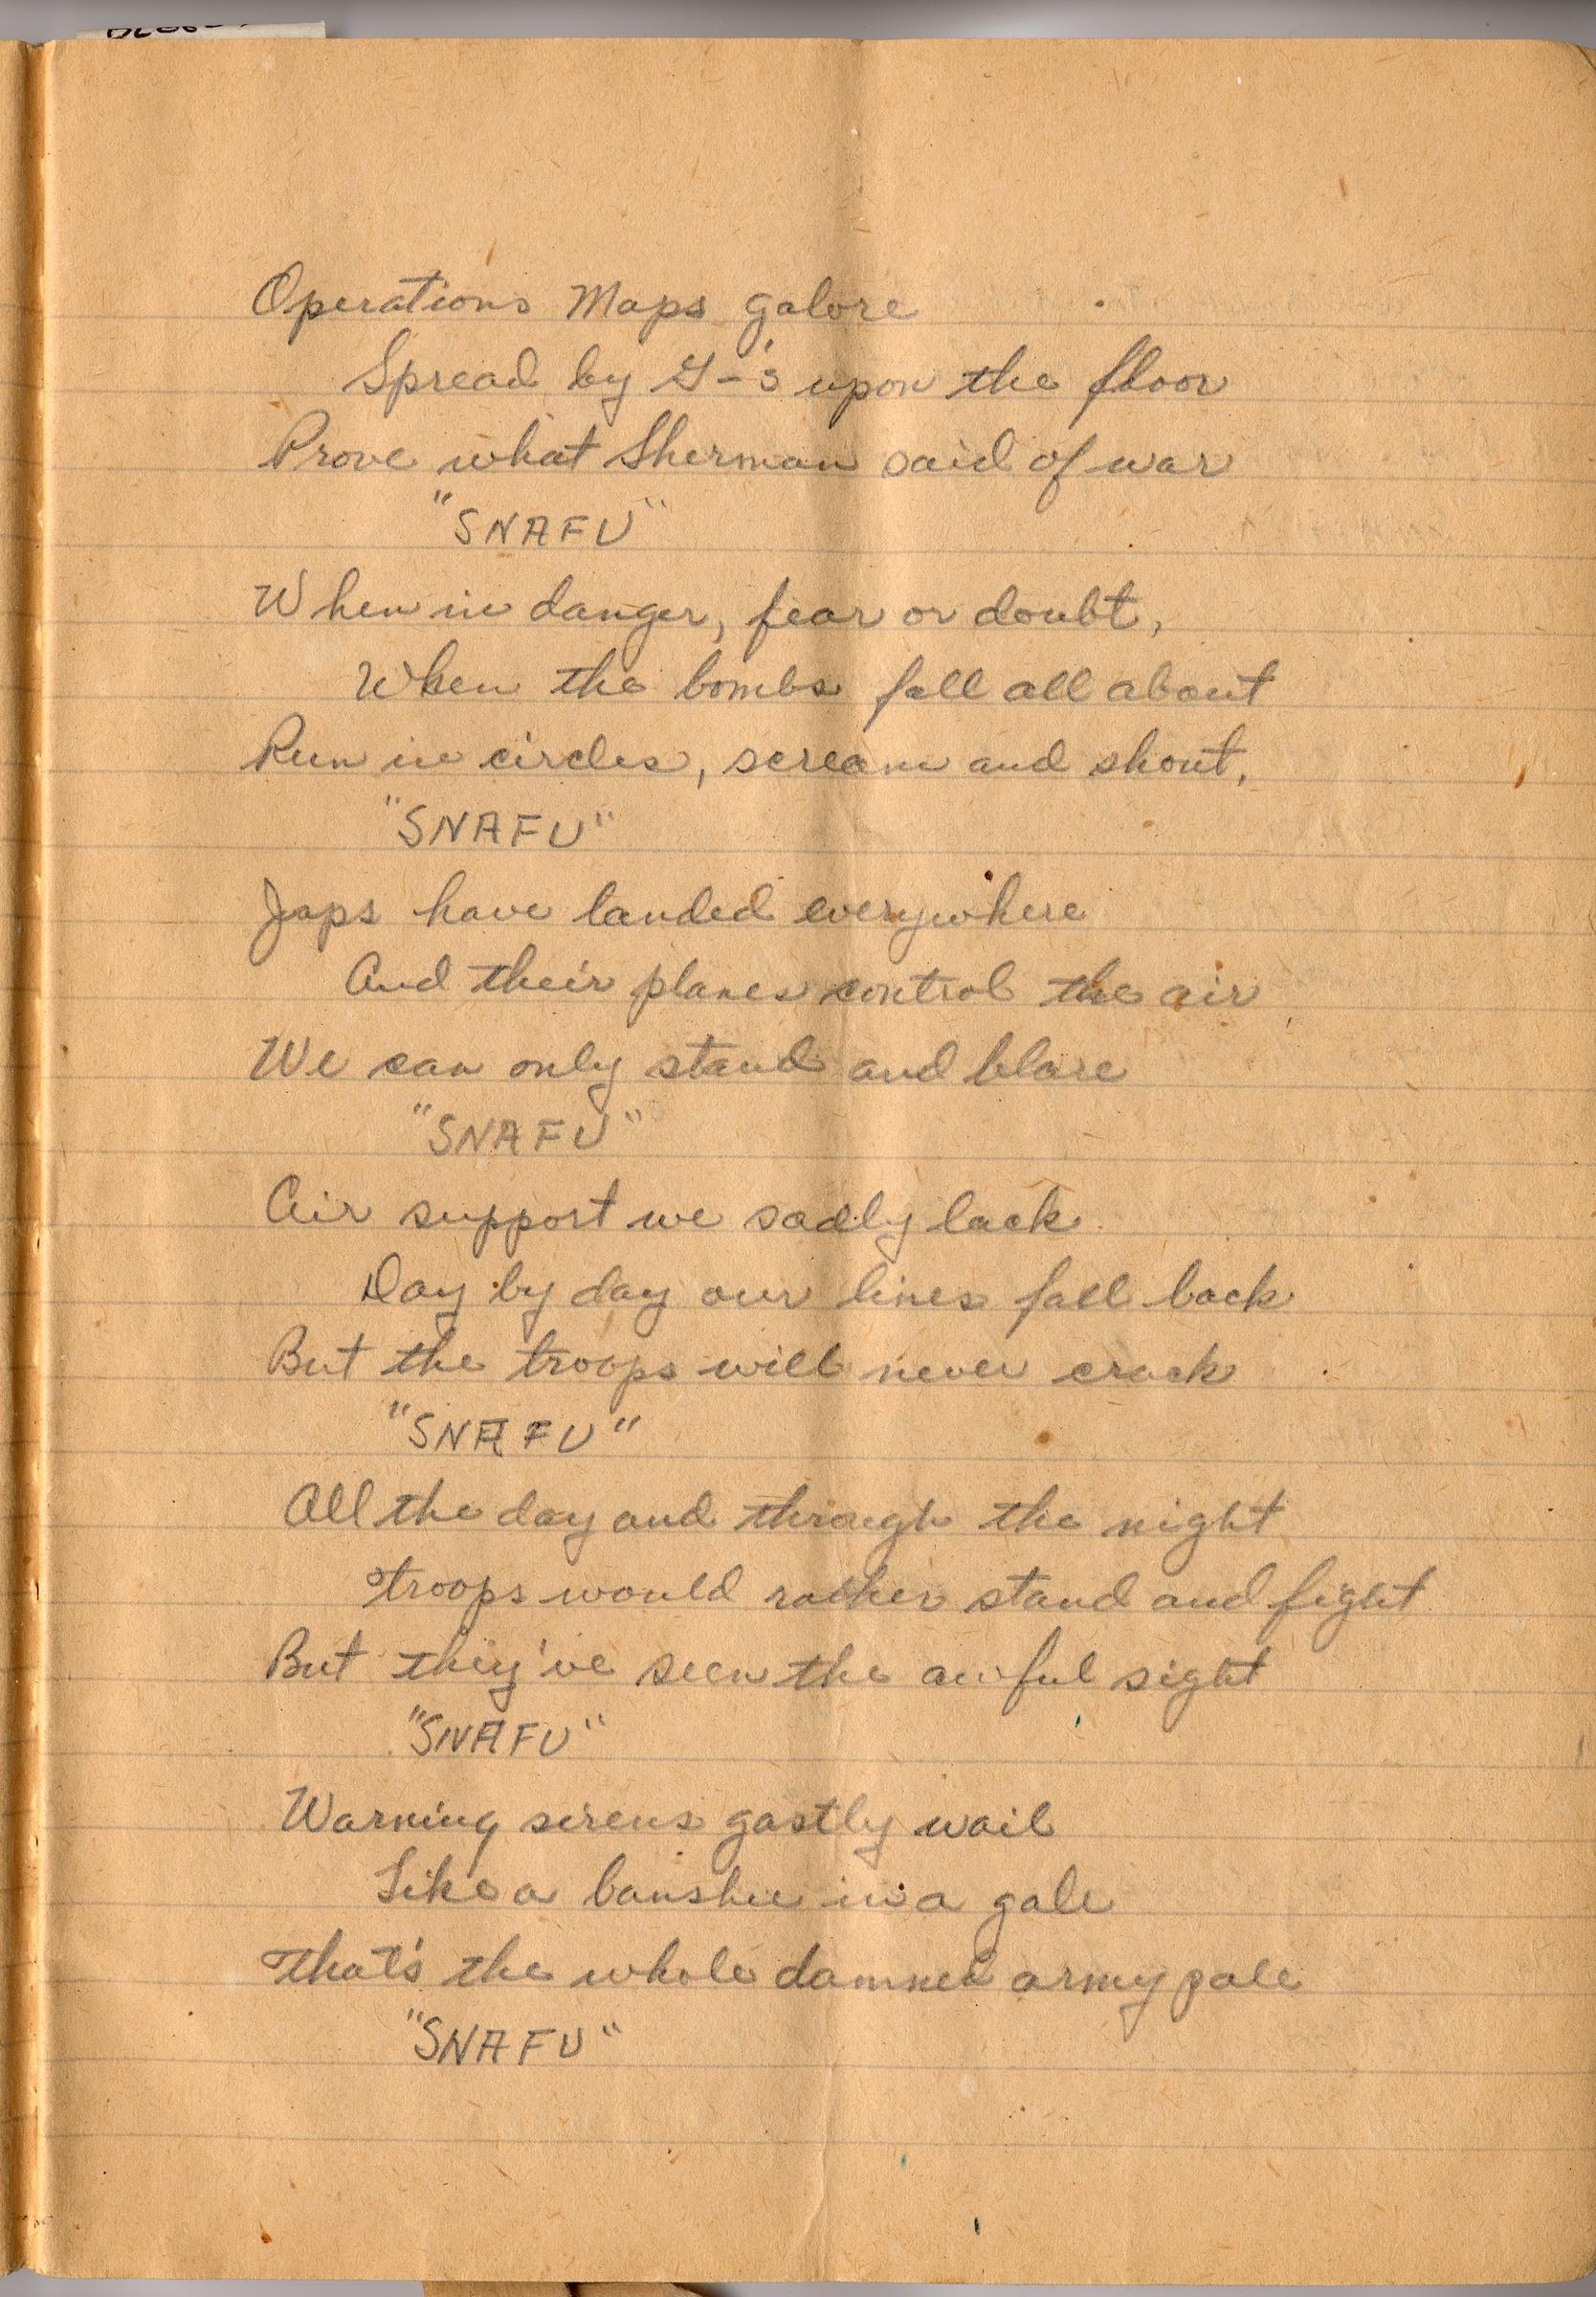 Operations Maps galore
Spread by G-'s upon the floor
Prove what Sherman said of war
"SNAFU"
When in danger, fear or doubt,
When the bombs fall all about
Run in circles, scream and shout,
"SNAFU"
Japs have landed everywhere
And their planes control the air
We can only stand and blare
"SNAFU"
Air support we sadly lack
Day by day our lines fall back
But the troops will never crack
"SNAFU"
All the day and through the night
Troops would rather stand and fight
But they've seen the awful sight
"SNAFU"
Warning sirens gastly wail
Like a banshee in a gale
That's the whole damned army pale
"SNAFU"